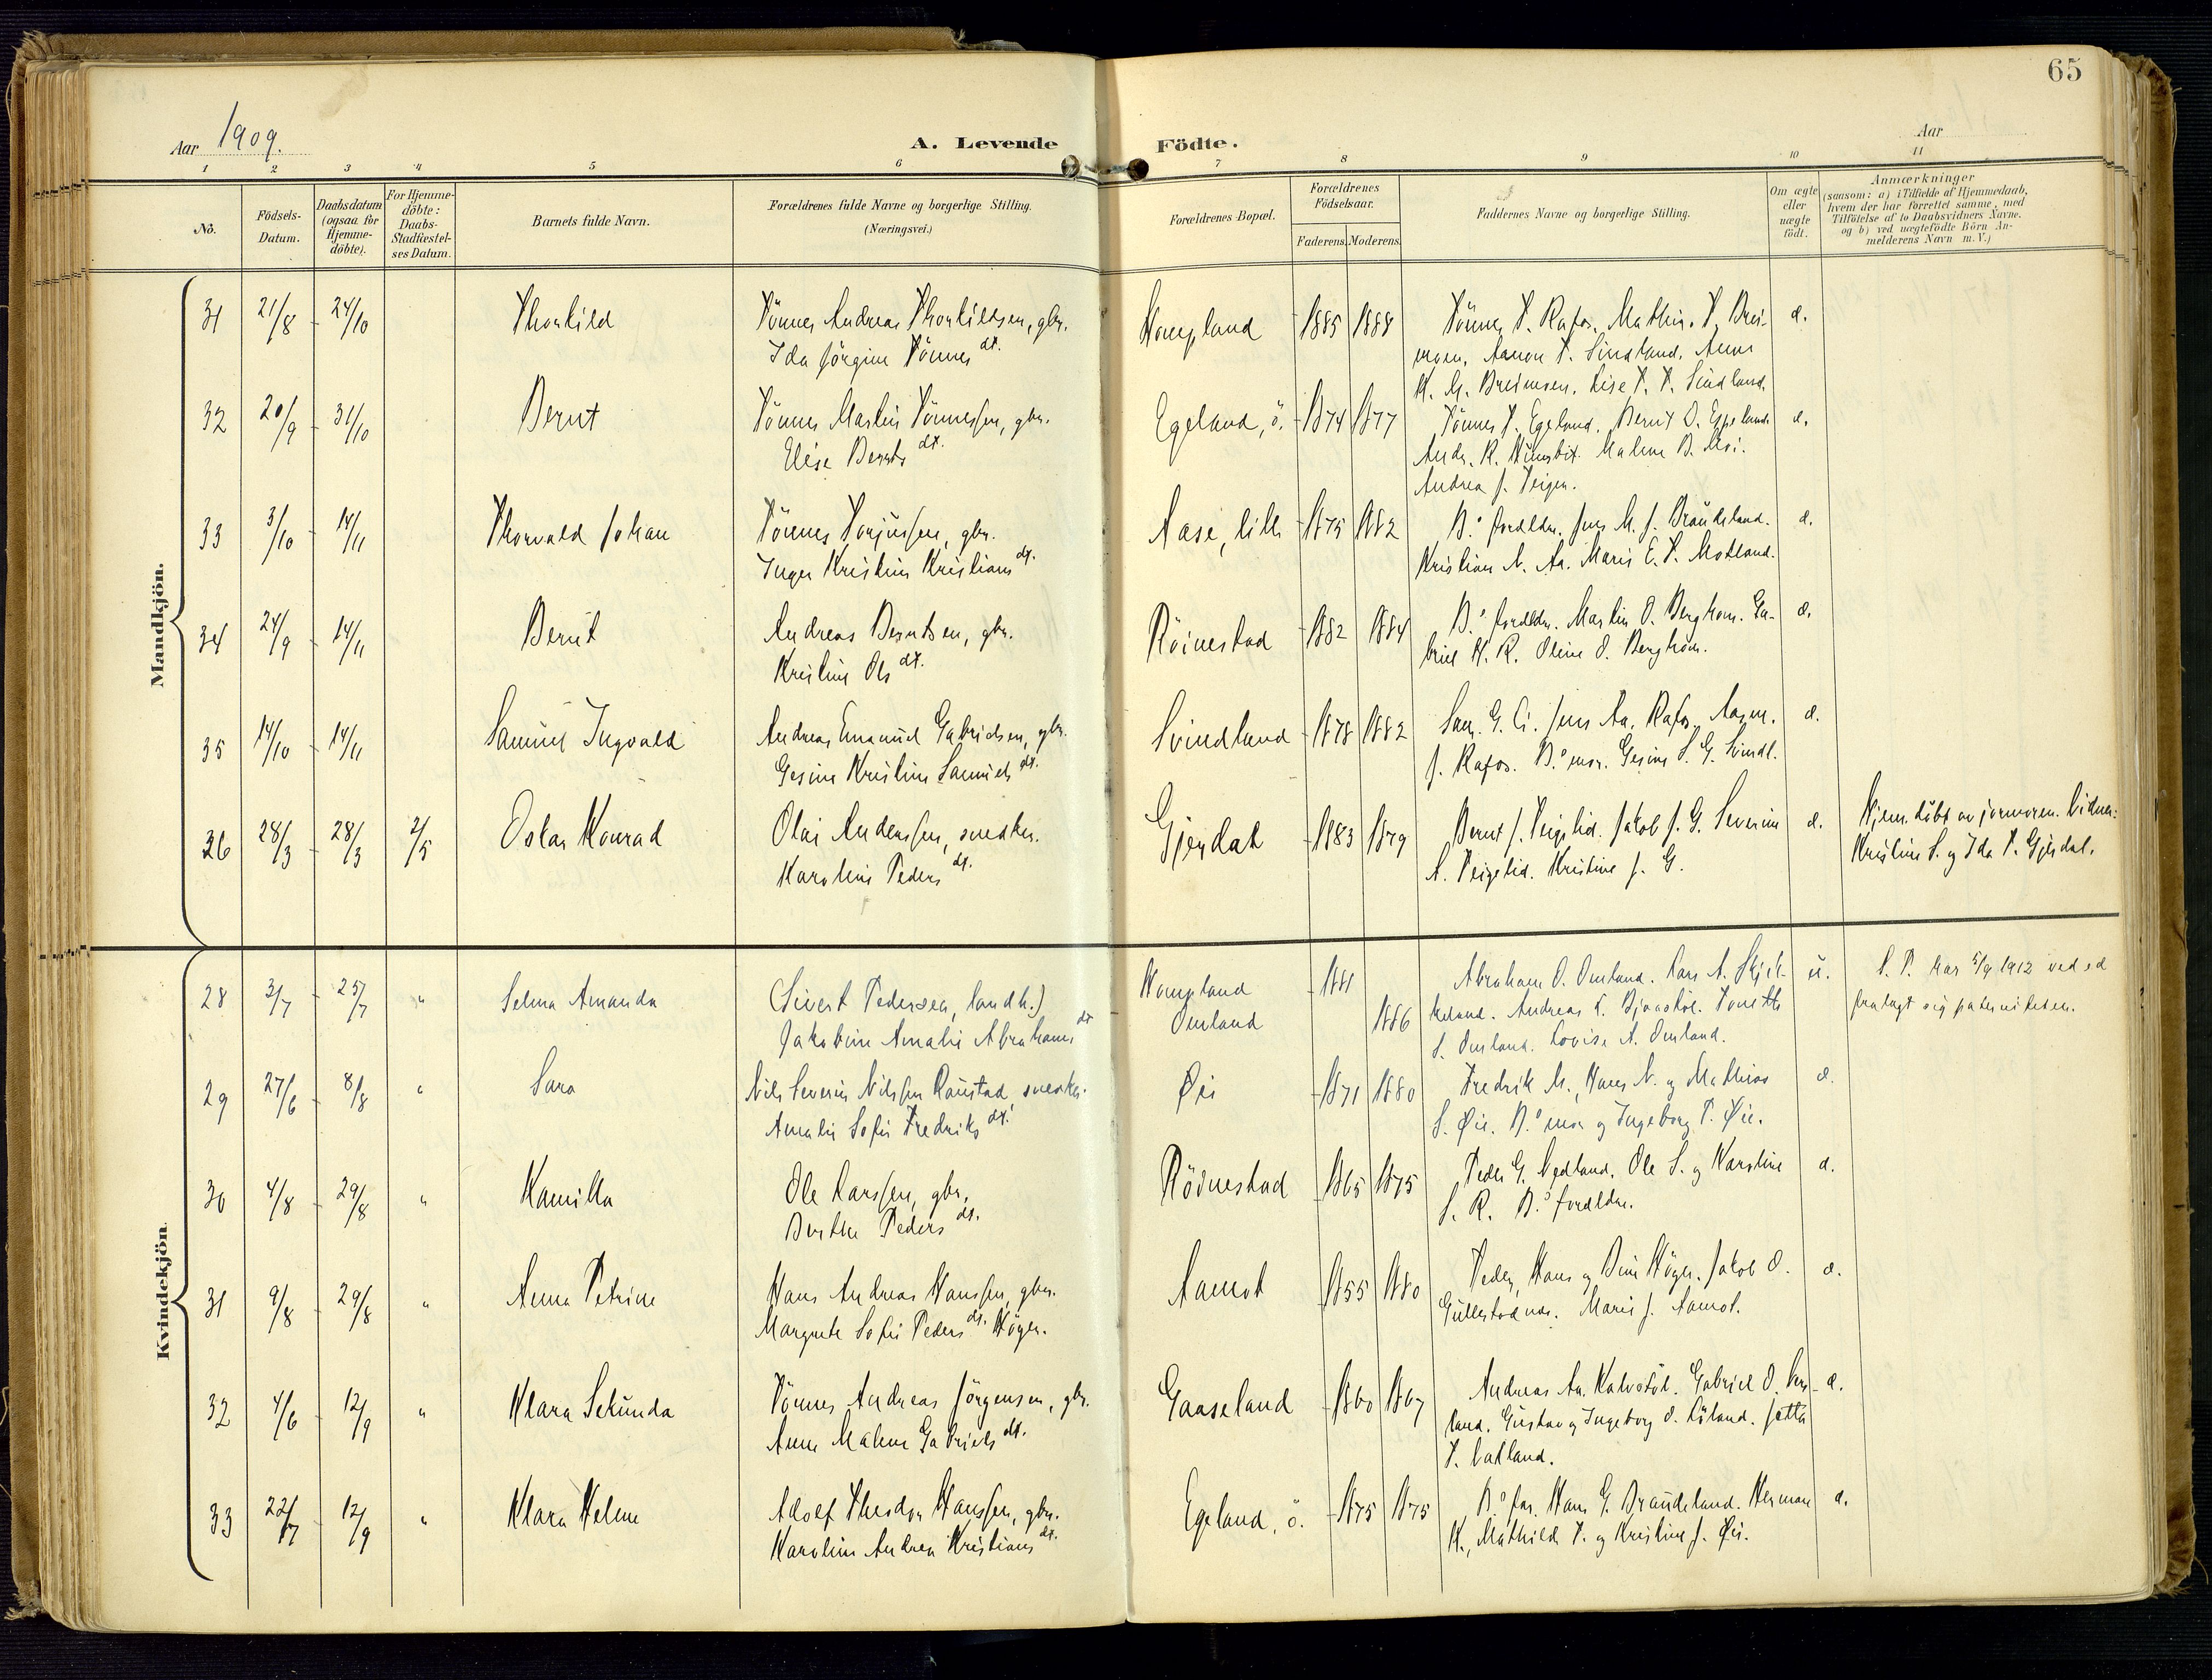 65
Aar 1909.
A. Levende Födte.
Aar
1 2 3 4 5 6 7 8 9 10 11
No.
Födsels-Datum.
Daabsdatum (ogsaa for Hjemme-döbte).
For Hjemme-döbte: Daabs-Stadfæstel-ses Datum.
Barnets fulde Navn.
Forældrenes fulde Navne og borgerlige Stilling.
(Næringsvei.)
Forældrenes Bopæl.
Forældrenes Födselsaar.
Faderens. Moderens.
Faddernes Navne og borgerlige Stilling.
Om ægte eller uægte födt.
Anmærkninger
(saasom: a) i Tilfælde af Hjemmedaab, hvem der har forrettet samme, med Tilföielse af to Daabsvidners Navne. og b) ved uægtefödte Börn Anmelderens Navn m.V.)
Mandkjön.
31 21/8 24/10 Thorkild Tönnes Andreas Thorkildsen, gbr. Hompland 1885 1888 Tönnes T. Rafos. Mathis. T. Brei- æ.
Ida Jörgine Tönnes dt. moen. Aanon T. Sindland. Anne
M. M. Breimoen. Lise T. T. Sindland.
32 20/9 31/10 Bernt Tönnes Martin Tönnessen, gbr. Egeland, ö. 1874 1877 Tönnes T. Egeland. Bernt O. Egeland. æ.
Elise Bernts dt. Andr. R. Malene B.
Andrea J. Teigen.
33 3/10 14/11 Thorvald Johan Tönnes Torjussen, gbr. Aase, lille 1875 1882 B.s forældre. Jens M. J. Braudeland. æ.
Inger Kristine Kristians dt. Kristian N. Aa. Marie E. T. Motland.
34 24/9 14/11 Bernt Andreas Berntsen, gbr. Röinestad 1882 1884 B.s forældre. Martin O. Berghom. Ga- æ.
Kristine Ols dt. briel K. R. Oline O. Berghom.
35 14/10 14/11 Samuel Ingvald Andreas Emanuel Gabrielsen, gbr. Svindland 1878 1882 Sam. G. S. Jens Aa. Rafos. Aasm. æ.
Gesine Kristine Samuels dt. J. Rafos. B.s mor. Gesine S. G. Svindl.
36 28/3 28/3 2/5 Oskar Konrad Olai Anderssen, snedker. Gjerdal 1883 1879 Bernt J. Teigelid. Jakob J. G. Severine æ. Hjem. döbt av jormoren. Vidner:
Karoline Peders dt. A. Teigelid. Kristine J. G. Kristine S. og Ida T. Gjerdal.
Kvindekjön.
28 3/7 25/7 " Selma Amanda (Sivert Pedersen, landh.) Hompland 1881 Abraham O. Omland. Lars A. Skjek- u. S. P. har 5/9 1912 ved ed
Jakobine Amalie Abrahams dt Omland 1886 keland. Andreas T. Tonette fralagt sig paterniteten.
S. Omland. Lovise A. Omland.
29 27/6 8/8 " Sara Nils Severin Nilssen Raustad, snedker. Øie 1871 1880 Fredrik M., Hans N. og Mathias æ.
Amalie Sofie Fredriks dt. S. Øie. B.s mor og Ingeborg T. Øie.
30 4/8 29/8 " Kamilla Ole Larssen, gbr. Röinestad 1865 1875 Peder G. Nedland. Ole S. og Karoline æ.
Berthe Peders dt. S. R. B.s forældre.
31 9/8 29/8 " Anna Petrine Hans Andreas Hanssen, gbr. Aamot 1855 1880 Peder, Hans og Dina Höyer. Jakob O. æ.
Margrete Sofie Peders dt. Höyer. Gullestadmo. Marie J. Aamot.
32 4/6 12/9 " Klara Sekunda Tönnes Andreas Jörgensen, gbr. Gaaseland 1860 1867 Andreas Aa. Kalvstöl. Gabriel O. Lö- æ.
Anne Malene Gabriels dt. land. Gustav og Ingeborg O. Löland. Jetta
T. Vatland.
33 22/7 12/9 " Klara Helene Adolf Theodor Hanssen, gbr. Egeland, ö. 1875 1875 B.s far. Hans G. Braudeland. Herman æ.
Karoline Andrea Kristians dt. K., Mathilde T. og Kristine J. Øie.